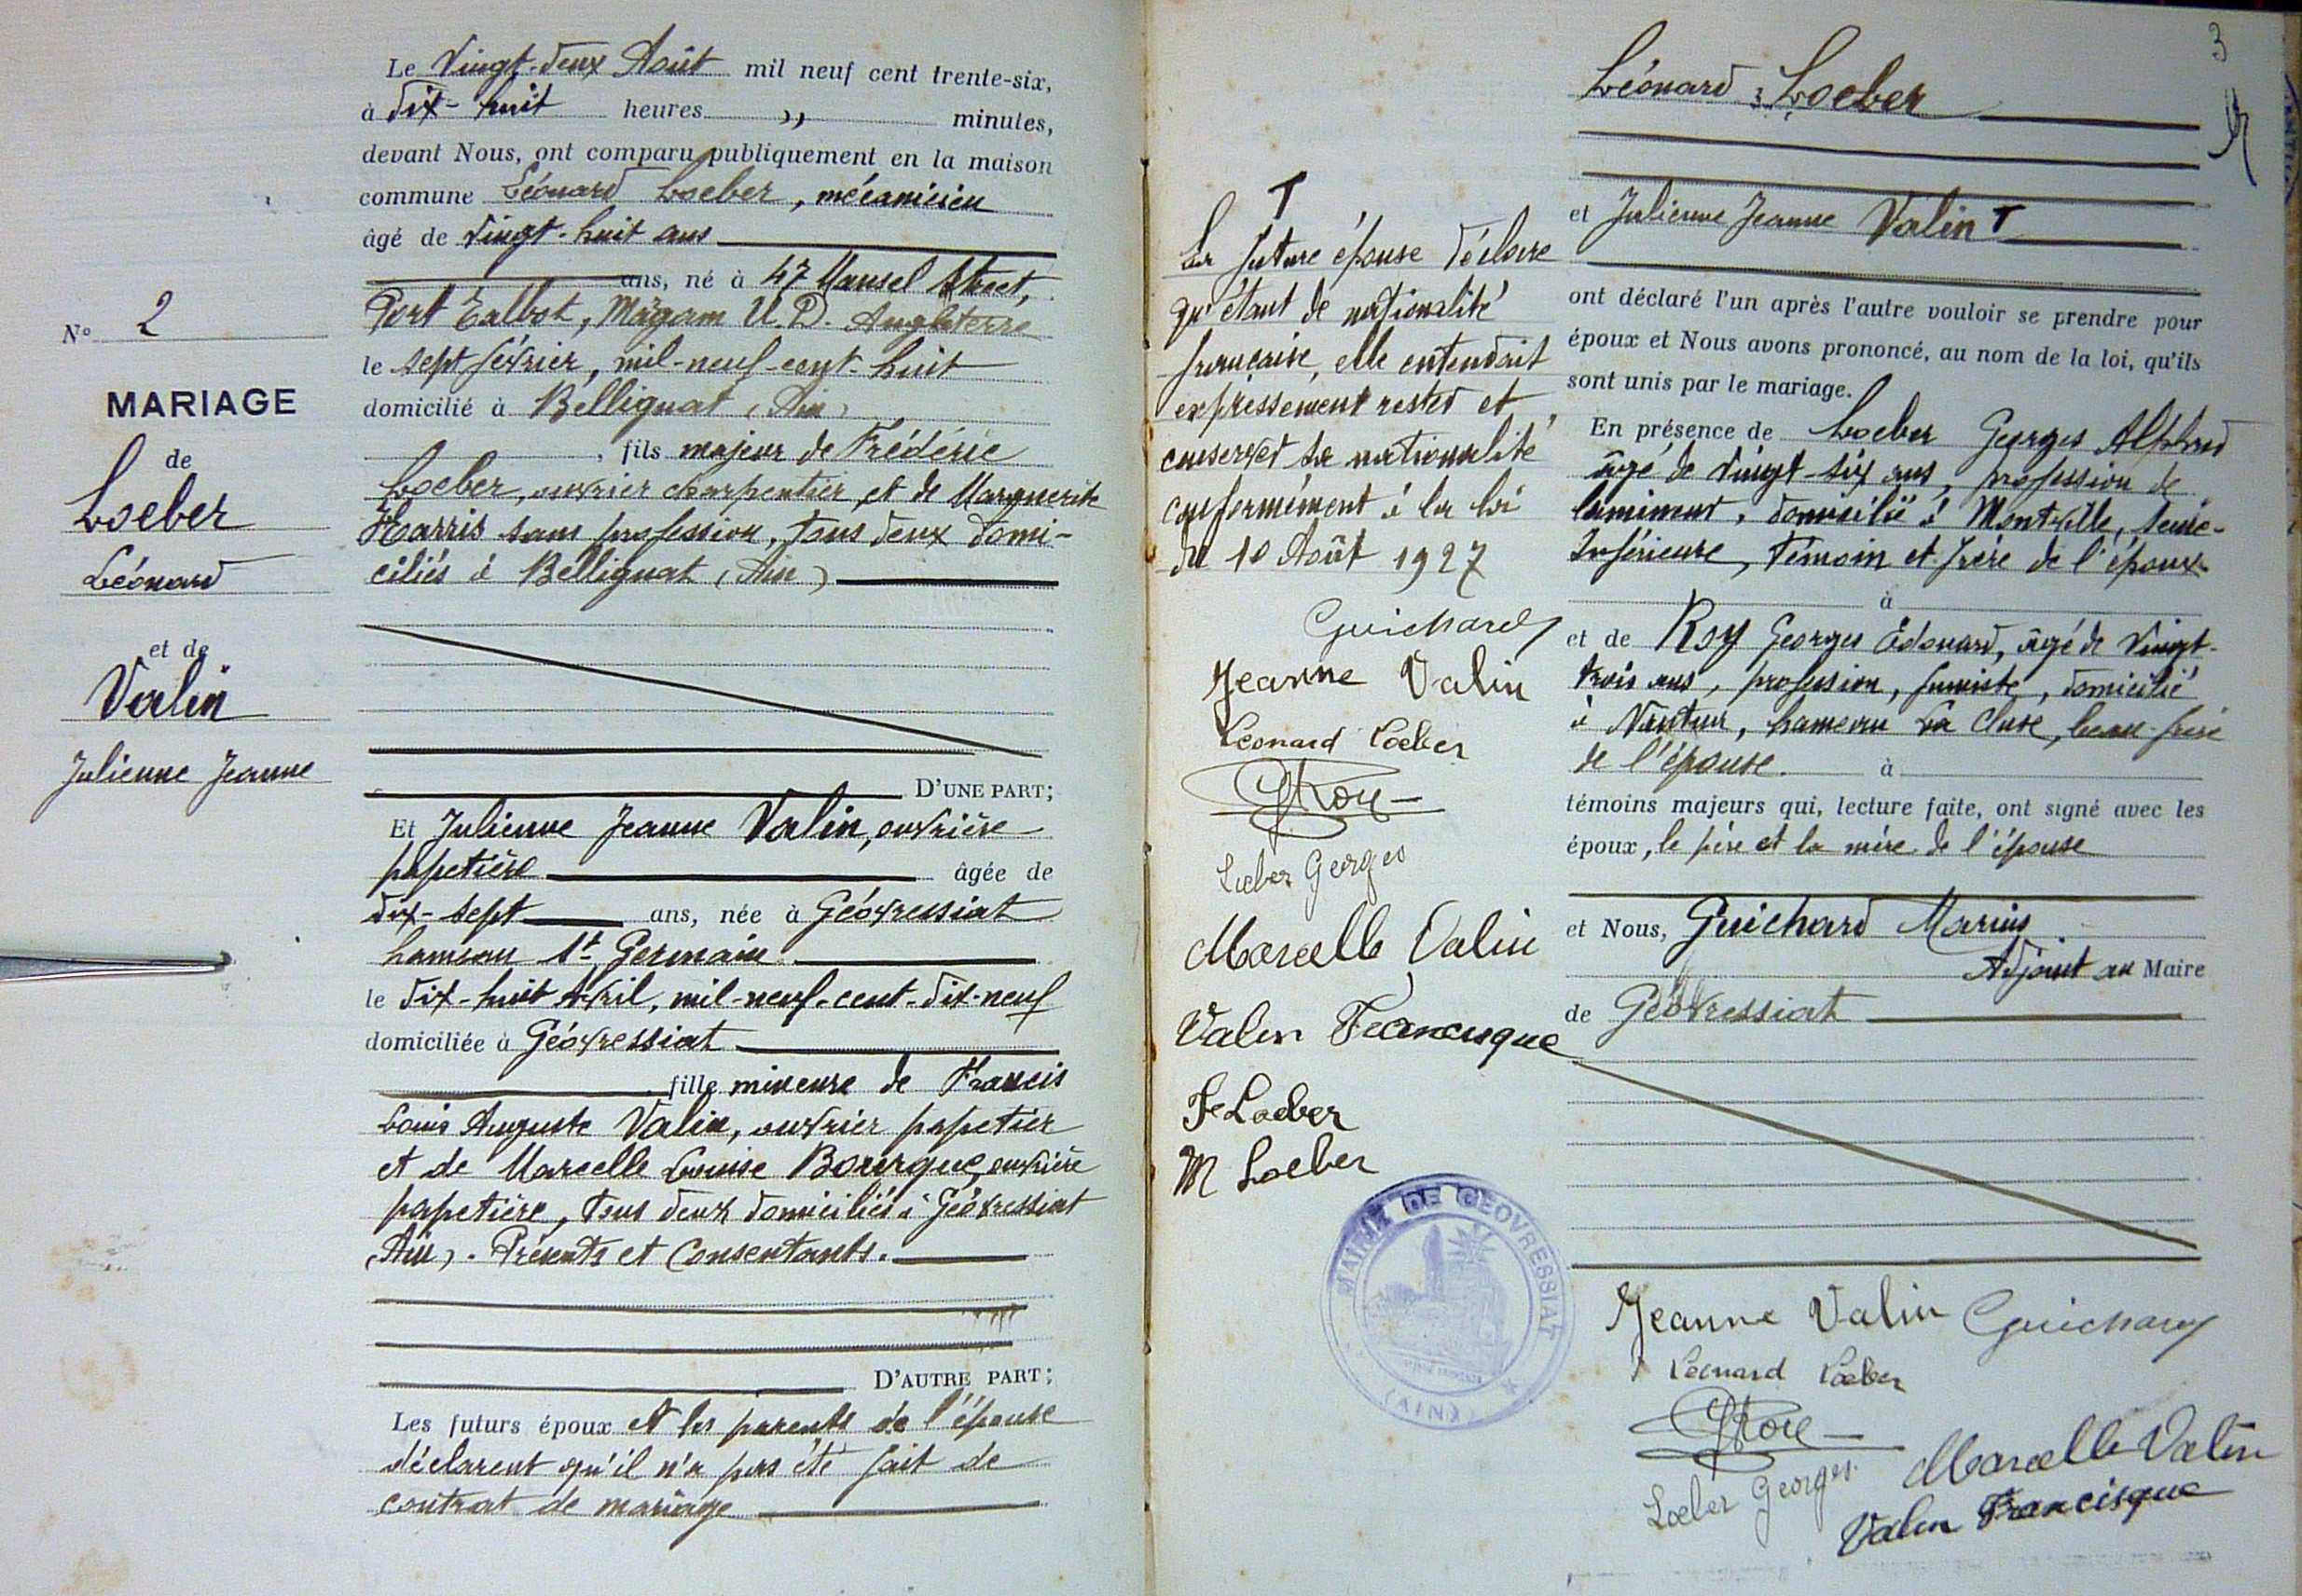 N° 2
MARIAGE
de
Loeber
Léonard
et de
Valin
Julienne Jeanne
Le Vingt-deux Août mil neuf cent trente-six,
à dix-huit heures ,, minutes,
devant Nous, ont comparu publiquement en la maison
commune Léonard Loeber, mécanicien
âgé de vingt-huit ans
ans, né à 47 Mansel Street,
Port Talbot, Margam U.D. Angleterre
le sept février, mil-neuf-cent-huit
domicilié à Bellignat (Ain)
, fils majeur de Frédéric
Loeber, ouvrier charpentier, et de Marguerite
Harris sans profession, tous deux domi-
ciliés à Bellignat (Ain)
D'UNE PART;
Et Julienne Jeanne Valin, ouvrière
papetière âgée de
dix-sept ans, née à Géovressiat
hameau St Germain
le dix-huit avril, mil-neuf-cent-dix-neuf
domiciliée à Géovressiat
, fille mineure de Francis
Louis Auguste Valin, ouvrier papetier
et de Marcelle Louise Bourgue, ouvrière
papetière, tous deux domiciliés à Géovressiat
(Ain). Présents et Consentants.
D'AUTRE PART;
Les futurs époux et les parents de l'épouse
déclarent qu'il n'a pas été fait de
contrat de mariage
3
Léonard Loeber
et Julienne Jeanne Valin T
ont déclaré l'un après l'autre vouloir se prendre pour
époux et Nous avons prononcé, au nom de la loi, qu'ils
sont unis par le mariage.
En présence de Loeber Georges Alphred
âgé de vingt-six ans, profession de
lamineur, domicilié à Montville, Seine-
Inférieure, témoin et frère de l'époux
à
et de Roy Georges Edouard, âgé de vingt-
trois ans, profession, fumiste, domicilié
à Nantua, hameau La Cluse, beau-frère
de l'épouse. à
témoins majeurs qui, lecture faite, ont signé avec les
époux, le père et la mère de l'épouse
et Nous, Guichard Marius
Adjoint au Maire
de Géovressiat
T
La future épouse déclare
qu'étant de nationalité
française, elle entendait
expressement rester et
conserver sa nationalité
conformément à la loi
du 10 Août 1927
Guichard
Jeanne Valin
Léonard Loeber
Loeber Georges
Marcelle Valin
Valin Francisque
F Loeber
M Loeber
MAIRIE DE GEOVRESSIAT
(AIN)
Jeanne Valin Guichard
Léonard Loeber
Loeber Georges
Marcelle Valin
Valin Francisque